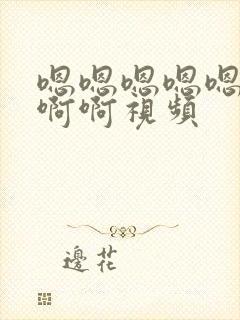 嗯嗯嗯嗯嗯
啊啊視頻
邊花